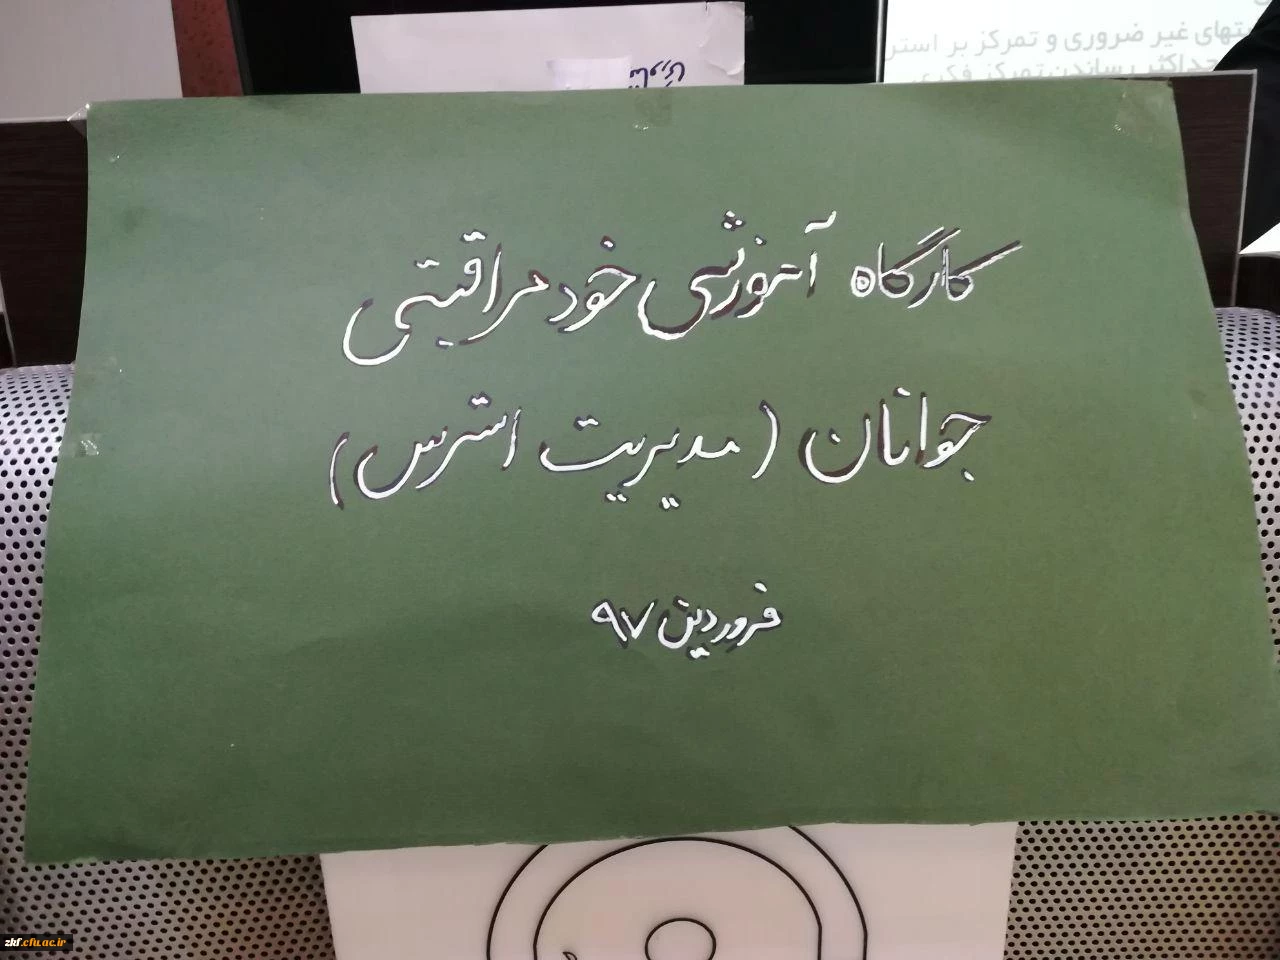 تهای غیر ضروری و تمرکز بر استر
حداکثر رساندن تمرکز فکری
کارگاه آموزشی خود مراقبتی
جوانان ( مدیریت استرس )
فروردین ۹۷
zkf.cfu.ac.ir